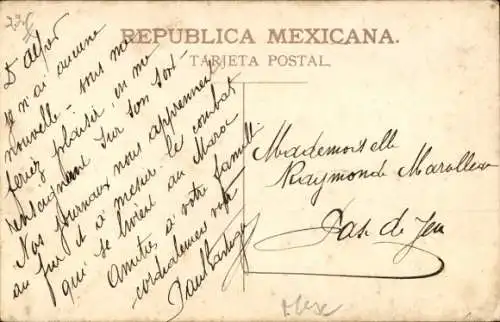 REPUBLICA MEXICANA.
TARJETA POSTAL.
D'Alfred
je n'ai aucune
nouvelle - vous me
feriez plaisir, en me
renseignant sur son sort -
Nos journaux nous apprennent
au fur et à mesure le combat
qui se livrent au Maroc
Amitiés à votre famille
cordialement votre
Paul
Mademoiselle
Raymonde
Pas de Jeu